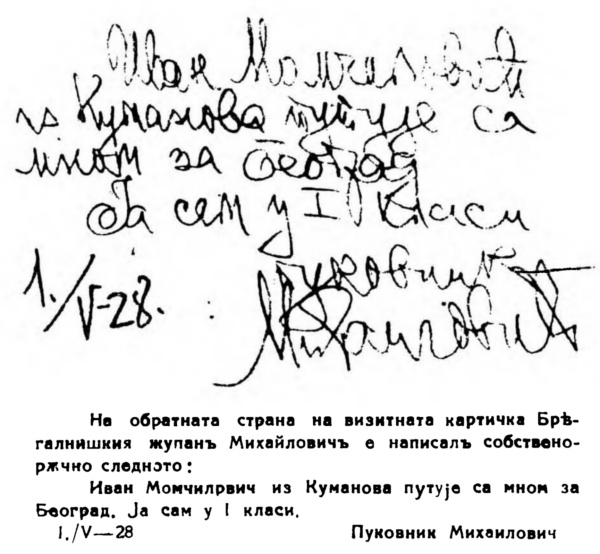 Иван Момчиловић
из Куманова путује са
мном за Београд
Ја сам у I класи
1./V-28.
Пуковник
Михаиловић
На обратната страна на визитната картичка Брѣ-
галнишкия жупанъ Михайловичъ е написалъ собствено-
рѫчно следното:
Иван Момчилрвич из Куманова путује са мном за
Београд. Ја сам у I класи.
1./V—28 Пуковник Михаилович